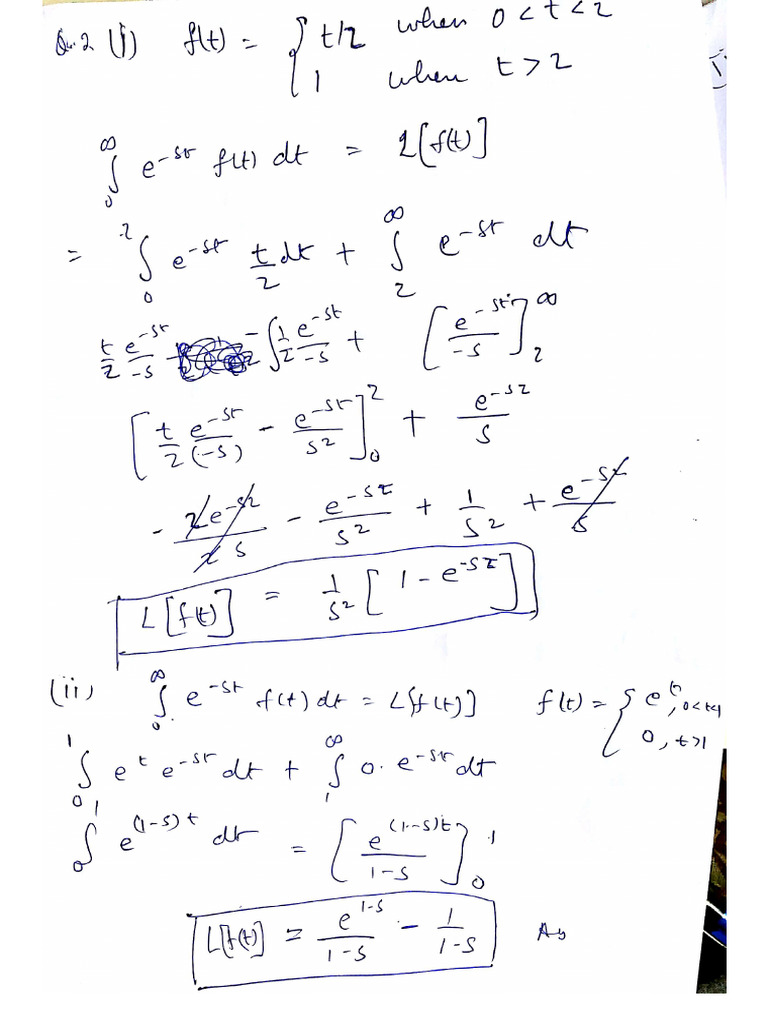 Qu. 2 (i) f(t) = { t/2 when 0 < t < 2
1 when t > 2
∫₀^∞ e^{-st} f(t) dt = L[f(t)]
= ∫₀^2 e^{-st} t/2 dt + ∫₂^∞ e^{-st} dt
t/2 e^{-st}/-s - ∫ 1/2 e^{-st}/-s + [e^{-st}/-s]₂^∞
[t/2 e^{-st}/(-s) - e^{-st}/s²]₀^2 + e^{-s2}/s
- 2e^{-s2}/2s - e^{-s2}/s² + 1/s² + e^{-s2}/s
L[f(t)] = 1/s² [1 - e^{-s2}]
(ii) ∫₀^∞ e^{-st} f(t) dt = L[f(t)] f(t) = { e^t, 0<t<1
0, t>1
∫₀^1 e^t e^{-st} dt + ∫₁^∞ 0. e^{-st} dt
∫₀^1 e^{(1-s)t} dt = [e^{(1-s)t}/1-s]₀^1
L[f(t)] = e^{1-s}/1-s - 1/1-s As